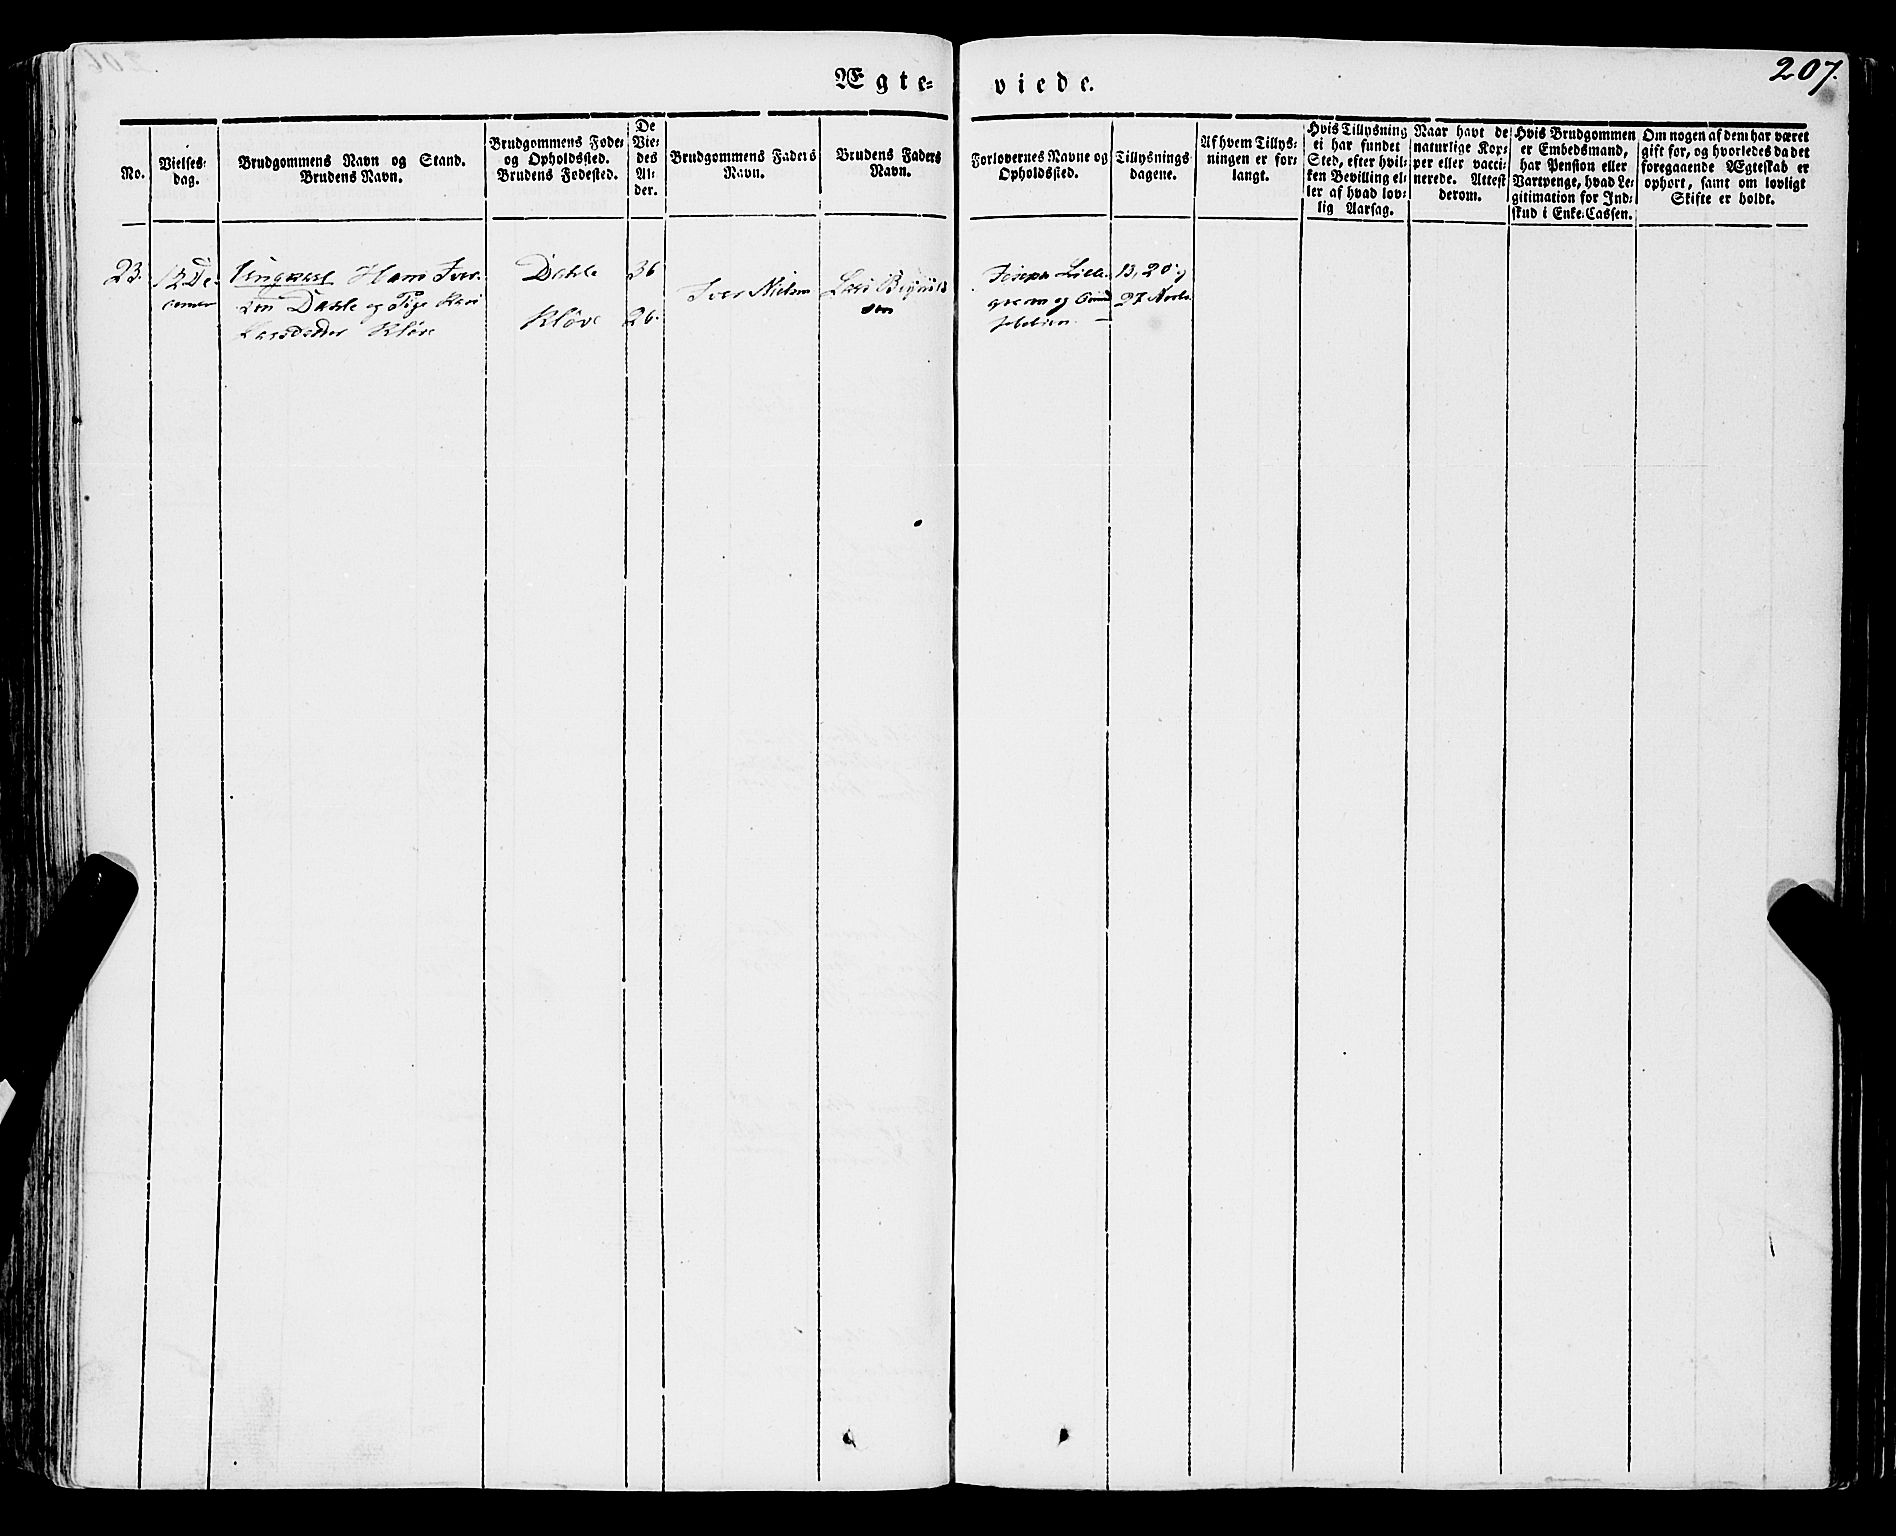 Ægte- viede.
207.
No.
Vielses-
dag.
Brudgommens Navn og Stand.
Brudens Navn.
Brudgommens Føde-
og Opholdssted.
Brudens Fødested.
De
Vie-
des
Al-
der.
Brudgommens Faders
Navn.
Brudens Faders
Navn.
Forlovernes Navne og
Opholdssted.
Tillysnings
dagene.
Af hvem Tillys-
ningen er for-
langt.
Hvis Tillysning
ei har fundet
Sted, efter hvil-
ken Bevilling el-
ler af hvad lov-
lig Aarsag.
Naar havt de
naturlige Kop-
per eller vacci-
nerede. Attest
derom.
Hvis Brudgommen
er Embedsmand,
har Pension eller
Vartpenge, hvad Le-
gitimation for Ind-
skud i Enke-Cassen.
Om nogen af dem har været
gift før, og hvorledes da det
foregaaende Ægteskab er
ophørt, samt om lovligt
Skifte er holdt.
23.
12 De-
cember
Ungkarl Hans Iver-
sen Dahle og Pige Kari
Larsdatter Kløve
Dahle
Kløve
36
26.
Iver Nielsen
Lars Brynils
sen
Joseph Lille-
og
13, 20 og
27 Novbr.